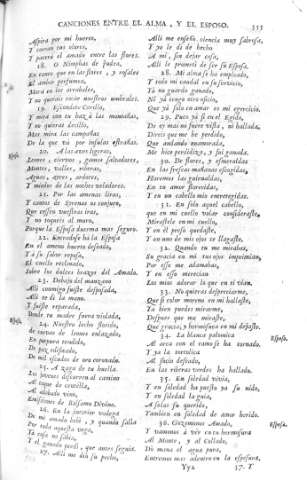 CANCIONES ENTRE EL ALMA, Y EL ESPOSO. 355
Aspira por mi huerto,
Y corran tus olores,
Y pacerá el amado entre las flores.
18. O Ninfas de Judea,
En tanto que en las flores, y rosales
El ambar perfumea,
Morá en los arrabales,
Y no querais tocar nuestros umbrales.
19. Escondete Carillo,
Y mira con tu haz á las montañas,
Y no quieras decillo,
Mas mira las compañas
De la que va por insulas estrañas.
A las aves ligeras,
Leones, ciervos, gamos saltadores,
Montes, valles, riberas,
Aguas, ayres, ardores,
Y miedos de las noches veladores.
21. Por las amenas liras,
Y cantos de Serenas os conjuro,
Que cessen vuestras iras,
Y no toqueis al muro,
Porque la Esposa duerma mas seguro.
22. Entradose ha la Esposa
En el ameno huerto deseado,
Y á su sabor reposa,
El cuello reclinado,
Sobre los dulces brazos del Amado.
23. Debajo del manzano
Alli conmigo fuiste desposada,
Alli te dí la mano,
Y fuiste reparada,
Donde tu madre fuera violada.
24. Nuestro lecho florido,
de cuevas de leones enlazado,
En purpura tendido,
De paz edificado,
De mil escudos de oro coronado.
25. A zaga de tu huella
Los jovenes discurren al camino
Al toque de centella,
Al adobado vino,
Emisiones de Balsamo Divino.
26. En la interior bodega
De mi amado bebí, y quando salía
Por toda aquesta vega,
Ya cosa no sabía,
Y el ganado perdí, que antes seguía.
27. Alli me dió su pecho,
Alli me enseñó ciencia muy sabrosa,
Y yo le dí de hecho
A mí, sin dejar cosa,
Alli le prometí de ser su Esposa.
28. Mi alma se ha empleado,
Y todo mi caudal en su servicio,
Yá no guardo ganado,
Ni yá tengo otro oficio,
Que yá solo en amar es mi exercicio.
29. Pues yá si en el Egido,
De oy mas no fuere vista, ni hallada,
Direis que me he perdido,
Que andando enamorada,
Me hice perdidiza, y fui ganada.
30. De flores, y esmeraldas
En las frescas mañanas escogidas,
Haremos las guirnaldas,
En tu amor floridas,
Y en un cabello mio entretegidas.
31. En solo aquel cabello,
que en mi cuello volar consideraste,
Mirastele en mi cuello,
Y en él preso quedaste,
Y en uno de mis ojos te llagaste.
32. Quando tu me mirabas,
Su gracia en mí tus ojos imprimían,
Por esso me adamabas,
Y en esso merecían
Los mios adorar lo que en tí vían.
33. No quieras despreciarme,
Que si color moreno en mí hallaste,
Ya bien puedes mirarme,
Despues que me miraste,
Que gracia, y hermosura en mí dejaste.
34. La blanca palomica
Al arca con el ramo se ha tornado.
Y ya la tortolica
Al socio deseado,
En las riberas verdes ha hallado.
35. En soledad vivía,
Y en soledad ha puesto yá su nido,
Y en soledad la guia,
A solas su querido,
Tambien en soledad de amor herido.
36. Gocemonos Amado,
Y vamonos á ver en tu hermosura
Al Monte, y al Collado,
Dó mana el agua pura,
Entremos mas adentro en la espesura,
Yy2
37. Y
Esposo.
Esposa.